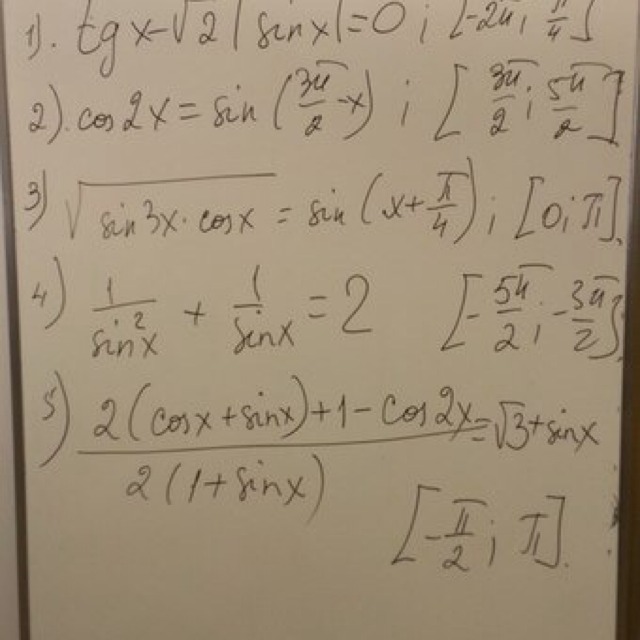 1). tg x - √2 |sin x| = 0 ; [-2π; π/4]
2). cos 2x = sin (3π/2 - x) ; [3π/2; 5π/2]
3) √(sin 3x · cos x) = sin (x + π/4); [0; π].
4) 1/sin²x + 1/sin x = 2 [-5π/2; -3π/2]
5) (2(cos x + sin x) + 1 - cos 2x)/(2(1 + sin x)) = √3 + sin x
[-π/2; π].